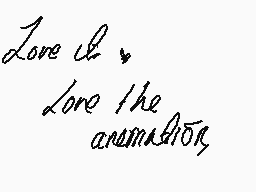 Love it ♥
Love the
anemation